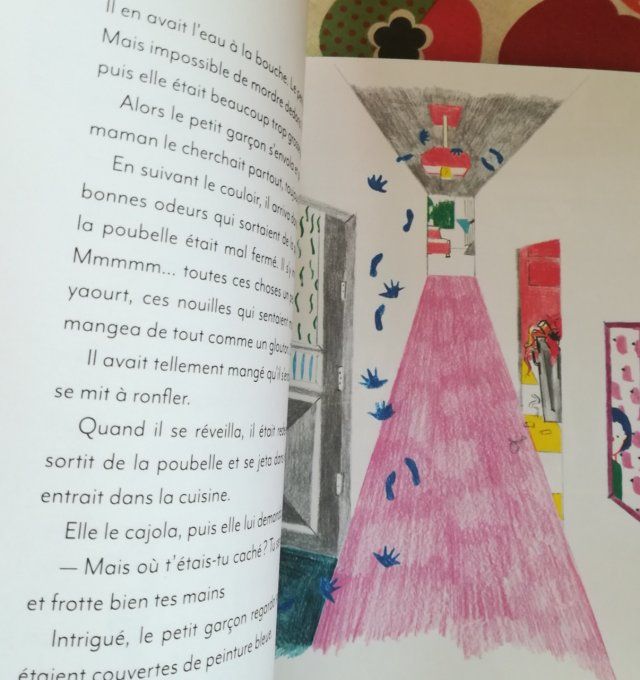 Il en avait l'eau à la bouche. Le
Mais impossible de mordre
puis elle était beaucoup trop
Alors le petit garçon s'envola
maman le cherchait partout,
En suivant le couloir, il arriva
bonnes odeurs qui sortaient de
la poubelle était mal fermé. Il s'y
Mmmmm... toutes ces choses un
yaourt, ces nouilles qui sentaient
mangea de tout comme un glouton
Il avait tellement mangé qu'il
se mit à ronfler.
Quand il se réveilla, il était
sortit de la poubelle et se jeta
entrait dans la cuisine.
Elle le cajola, puis elle lui
— Mais où t'étais-tu caché ? Tu
et frotte bien tes mains
Intrigué, le petit garçon
étaient couvertes de peinture bleue